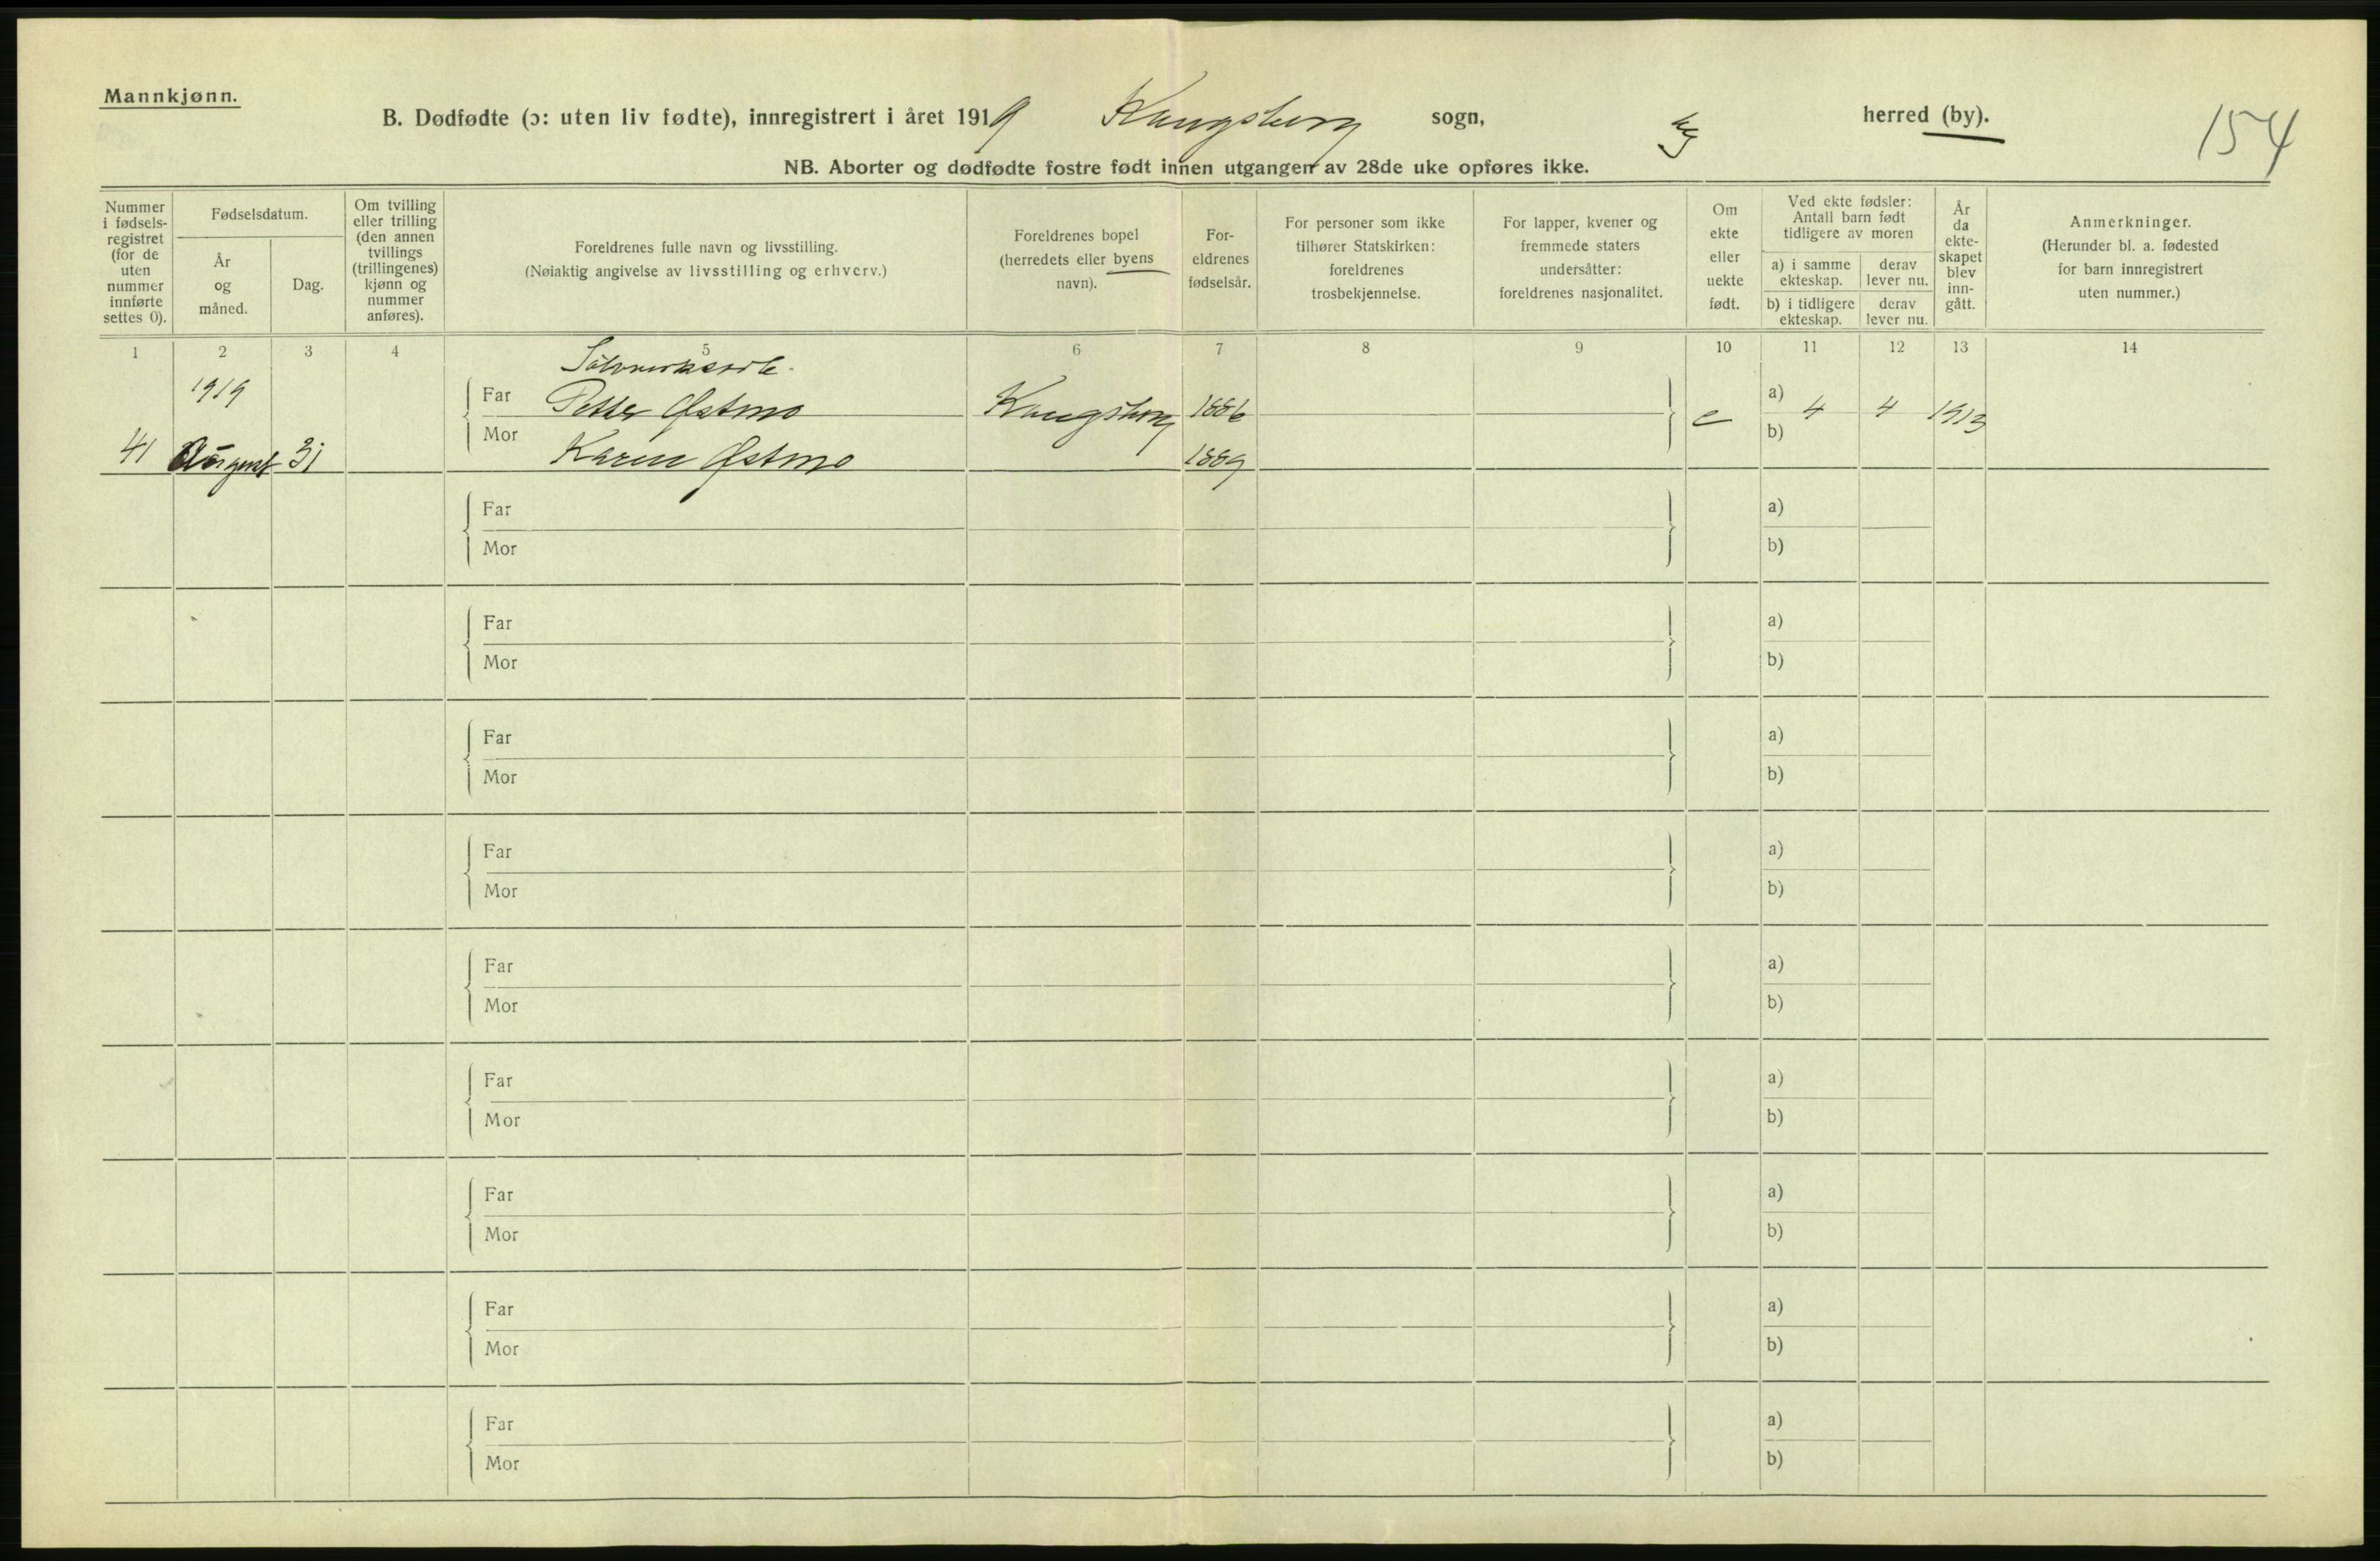 Mannkjønn.
B. Dødfødte (ɔ: uten liv fødte), innregistrert i året 1919 Kongsberg sogn, by herred (by). 154
NB. Aborter og dødfødte fostre født innen utgangen av 28de uke opføres ikke.
Nummer i fødsels-registret (for de uten nummer innførte settes 0).
Fødselsdatum.
År og måned.
Dag.
Om tvilling eller trilling (den annen tvillings (trillingenes) kjønn og nummer anføres).
Foreldrenes fulle navn og livsstilling.
(Nøiaktig angivelse av livsstilling og erhverv.)
Foreldrenes bopel (herredets eller byens navn).
For-eldrenes fødselsår.
For personer som ikke tilhører Statskirken: foreldrenes trosbekjennelse.
For lapper, kvener og fremmede staters undersåtter: foreldrenes nasjonalitet.
Om ekte eller uekte født.
Ved ekte fødsler: Antall barn født tidligere av moren
a) i samme ekteskap.
derav lever nu.
b) i tidligere ekteskap.
derav lever nu.
År da ekte-skapet blev inn-gått.
Anmerkninger.
(Herunder bl. a. fødested for barn innregistrert uten nummer.)
1 2 3 4 5 6 7 8 9 10 11 12 13 14
Sølvverksarb.
1919 Far Petter Østmo Kongsberg 1886 e a) 4 4 1913
41 August 31 Mor Karen Østmo 1889 b)
Far a)
Mor b)
Far a)
Mor b)
Far a)
Mor b)
Far a)
Mor b)
Far a)
Mor b)
Far a)
Mor b)
Far a)
Mor b)
Far a)
Mor b)
Far a)
Mor b)